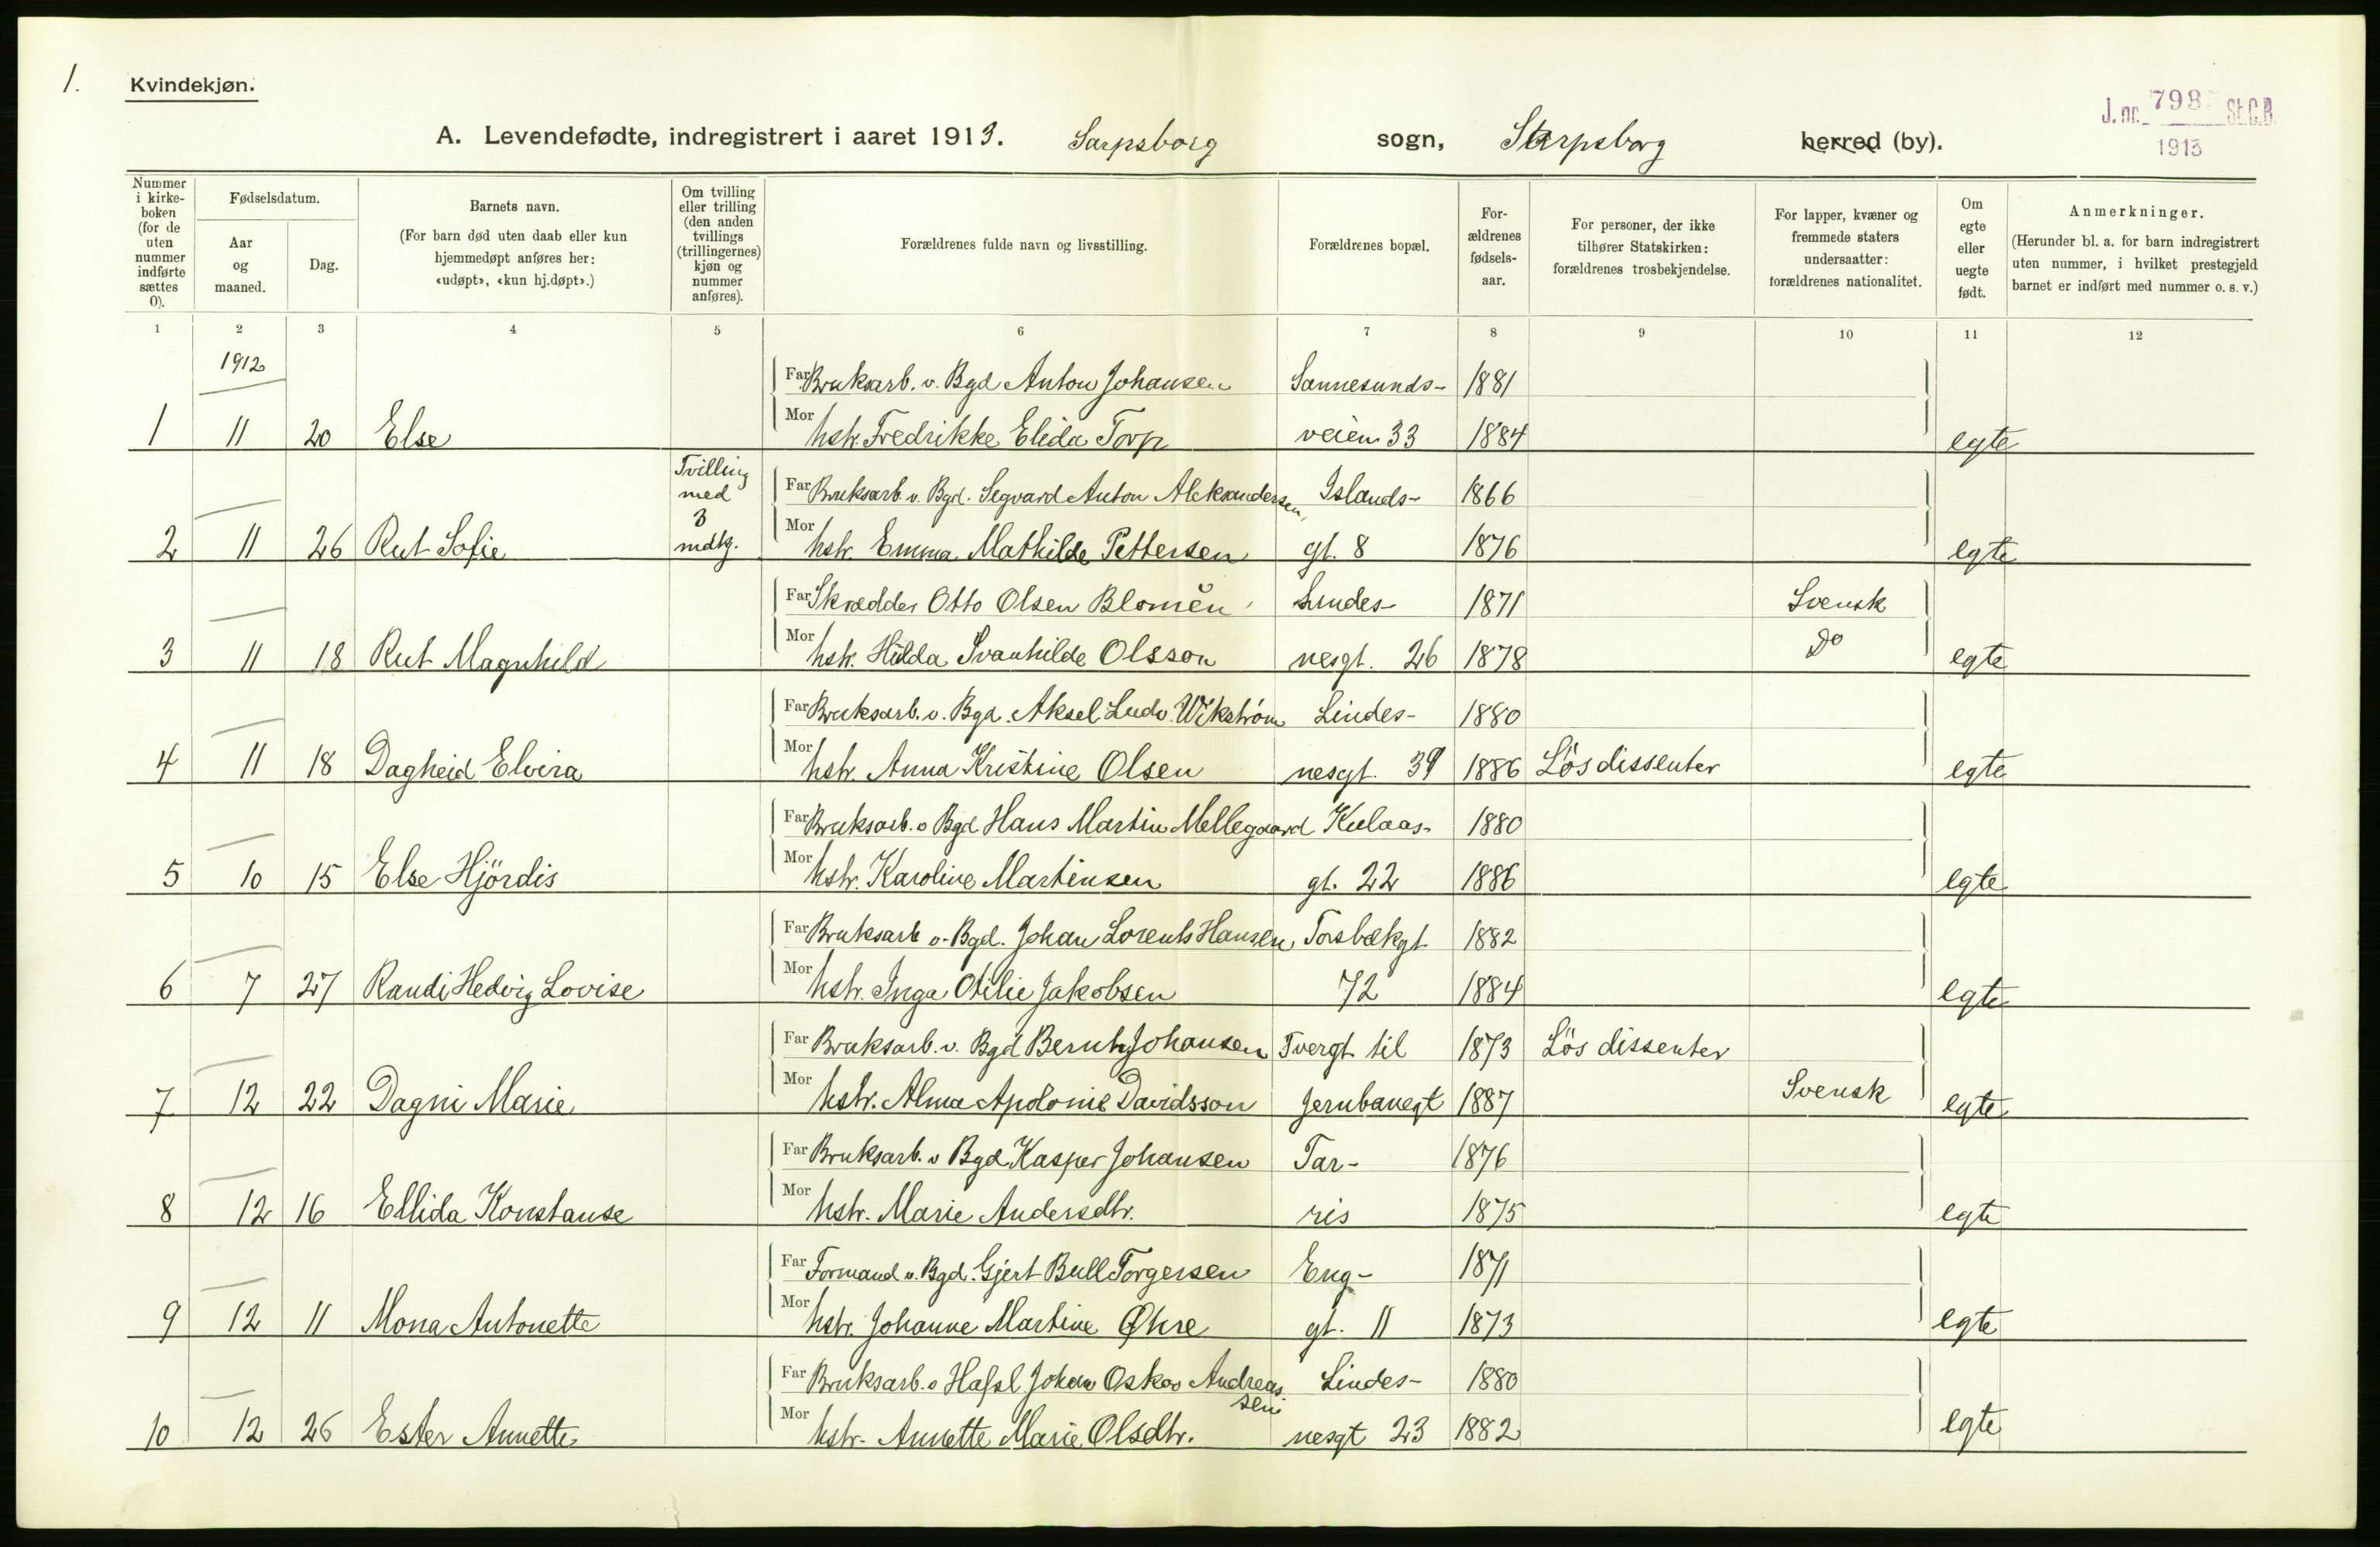 1.
Kvindekjøn.
J. nr. 798 St.C.B.
1913
A. Levendefødte, indregistrert i aaret 1913. Sarpsborg sogn, Sarpsborg herred (by).
Nummer i kirkeboken (for de uten nummer indførte sættes 0).
Fødselsdatum.
Aar og maaned.
Dag.
Barnets navn.
(For barn død uten daab eller kun hjemmedøpt anføres her: «udøpt», «kun hj.døpt».)
Om tvilling eller trilling (den anden tvillings (trillingernes) kjøn og nummer anføres).
Forældrenes fulde navn og livsstilling.
Forældrenes bopæl.
Forældrenes fødselsaar.
For personer, der ikke tilhører Statskirken: forældrenes trosbekjendelse.
For lapper, kvæner og fremmede staters undersaatter: forældrenes nationalitet.
Om egte eller uegte født.
Anmerkninger.
(Herunder bl. a. for barn indregistrert uten nummer, i hvilket prestegjeld barnet er indført med nummer o. s. v.)
1 2 3 4 5 6 7 8 9 10 11 12
1912
Far Bruksarb. v. Bgd Anton Johansen Sannesunds- 1881
1 11 20 Else Mor hstr. Fredrikke Elida Torp veien 33 1884 egte
Tvilling med 3 mdkj.
Far Bruksarb v. Bgd. Segvard Anton Aleksandersen, Islands- 1866
2 11 26 Rut Sofie Mor hstr. Emma Mathilde Pettersen gt. 8 1876 egte
Far Skrædder Otto Olsen Blomén Lindes- 1871 Svensk
3 11 18 Rut Magnhild Mor hstr. Hilda Svanhilde Olsson nesgt. 26 1878 Do egte
Far Bruksarb. v. Bgd. Aksel Ludv. Wikstrøm Lindes- 1880
4 11 18 Dagheid Elvira Mor hstr. Anna Kristine Olsen nesgt. 39 1886 Lös dissenter egte
Far Bruksarb. v Bgd Hans Martin Mellegaard Kulaas- 1880
5 10 15 Else Hjördis Mor hstr. Karoline Martinsen gt. 22 1886 egte
Far Bruksarb v. Bgd. Johan Lorents Hansen Torsbækgt 1882
6 7 27 Randi Hedvig Lovise Mor hstr. Inga Otilie Jakobsen 72 1884 egte
Far Bruksarb. v. Bgd Bernt Johansen Tvergt til 1873 Lös dissenter
7 12 22 Dagni Marie Mor hstr. Alma Apolonie Davidsson Jernbanegt 1887 Svensk egte
Far Bruksarb. v Bgd Kasper Johansen Tar- 1876
8 12 16 Ellida Konstanse Mor hstr. Marie Andersdtr. ris 1875 egte
Far Formand v. Bgd. Gjert Bull Torgersen Eng- 1871
9 12 11 Mona Antonette Mor hstr. Johanne Martine Øhre gt. 11 1873 egte
Far Bruksarb. v Hafsl Johan Oskar Andreassen Lindes- 1880
10 12 26 Ester Annette Mor hstr. Annette Marie Olsdtr. nesgt 23 1882 egte